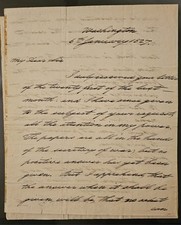 Washington
6th January 1827
My dear Sir
I duly received your letter
of the twenty first of the last
month and I have since given
to the subject of your request
all the attention in my power.
The papers are still in the hands
of the secretary of war; but no
positive answer has yet been
given. But I apprehend that
the answer when it shall be
given will be that no